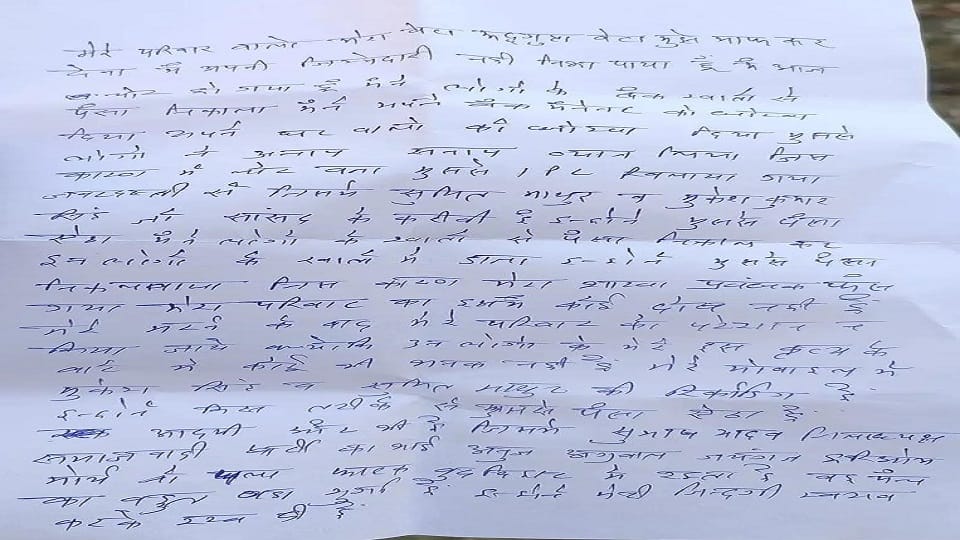 मेरे परिवार वालो मेरा बेटा बेटा मुझे माफ कर
देना मैं अपनी जिम्मेदारी नही निभा पाया हूँ मैं आज
चोर हो गया हूँ मैंने लोगो के बैंक खातो से
पैसा निकाला मैंने अपने बैंक मैनेजर को धोखा
दिया अपने घर वालो को धोखा दिया मुझसे
लोगो ने अनाप सनाप ब्याज लिया जिस
कारण मैं चोर बना मुझसे IPL खिलाया गया
जबरदस्ती से जिसमे सुमित माथुर व मुकेश कुमार
सिंह जो सांसद के करीबी है इन्होने मुझसे पैसा
मैंने लोगो के खातो से पैसा निकाल कर
इन लोगो के खातो मे डाला इन्होने मुझसे पैसा
निकलवाया जिस कारण मेरा शाखा प्रबंधक फँस
गया मेरा परिवार का इसमे कोई दोष नही है
मेरे मरने के बाद मेरे परिवार को परेशान न
किया जाये क्योकि उन लोगो को मेरे इस कृत्य के
बारे मे कोई भी भनक नही है मेरे मोबाइल मे
मुकेश सिंह व सुमित माथुर की रिकॉर्डिंग है
इन्होने किस तरीके से मुझसे पैसा है
आदमी और भी है जिसमे यादव जिलाध्यक्ष
समाजवादी पार्टी का भाई अनुज अग्रवाल
मौर्य मे रहता है वह
का बहुत बड़ा है इन्होने मेरी जिन्दगी खराब
करके रख दी है